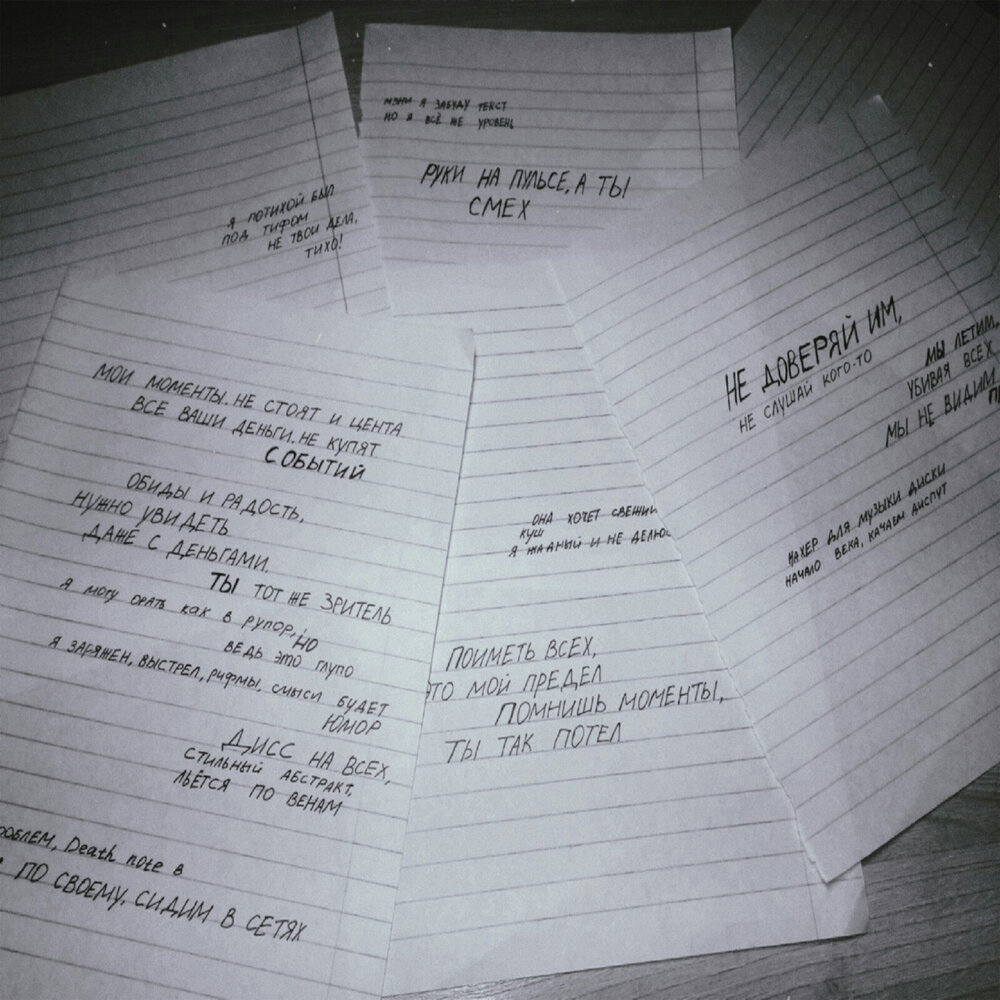 Я ПОТИХОЙ БЫЛ
ПОД ТИФОМ
НЕ ТВОИ ДЕЛА,
ТИХО!
МЭНИ Я ЗАБУДУ ТЕКСТ
НО Я ВСЁ ЖЕ УРОВЕНЬ
РУКИ НА ПУЛЬСЕ, А ТЫ
СМЕХ
НЕ ДОВЕРЯЙ ИМ,
НЕ СЛУШАЙ КОГО-ТО
МЫ ЛЕТИМ,
УБИВАЯ ВСЕХ
МЫ НЕ ВИДИМ
НАХЕР ДЛЯ МУЗЫКИ ДИСКИ
НАЧАЛО ВЕКА, КАЧАЕМ ДИСПУТ
МОИ МОМЕНТЫ, НЕ СТОЯТ И ЦЕНТА
ВСЕ ВАШИ ДЕНЬГИ, НЕ КУПЯТ
СОБЫТИЙ
ОБИДЫ И РАДОСТЬ,
НУЖНО УВИДЕТЬ
ДАЖЕ С ДЕНЬГАМИ.
ТЫ ТОТ ЖЕ ЗРИТЕЛЬ
Я МОГУ ОРАТЬ КАК В РУПОР, НО
ВЕДЬ ЭТО ГЛУПО
Я ЗАРЯЖЕН, ВЫСТРЕЛ, РИФМЫ, СМЫСЛ БУДЕТ
ЮМОР
ДИСС НА ВСЕХ,
СТИЛЬНЫЙ АБСТРАКТ,
ЛЬЁТСЯ ПО ВЕНАМ
РОБЛЕМ, Death note в
ПО СВОЕМУ, СИДИМ В СЕТЯХ
ОНА ХОЧЕТ СВЕЖИЙ
КУШ
Я ЖАДНЫЙ И НЕ ДЕЛЮС
ПОИМЕТЬ ВСЕХ,
ЭТО МОЙ ПРЕДЕЛ
ПОМНИШЬ МОМЕНТЫ,
ТЫ ТАК ПОТЕЛ